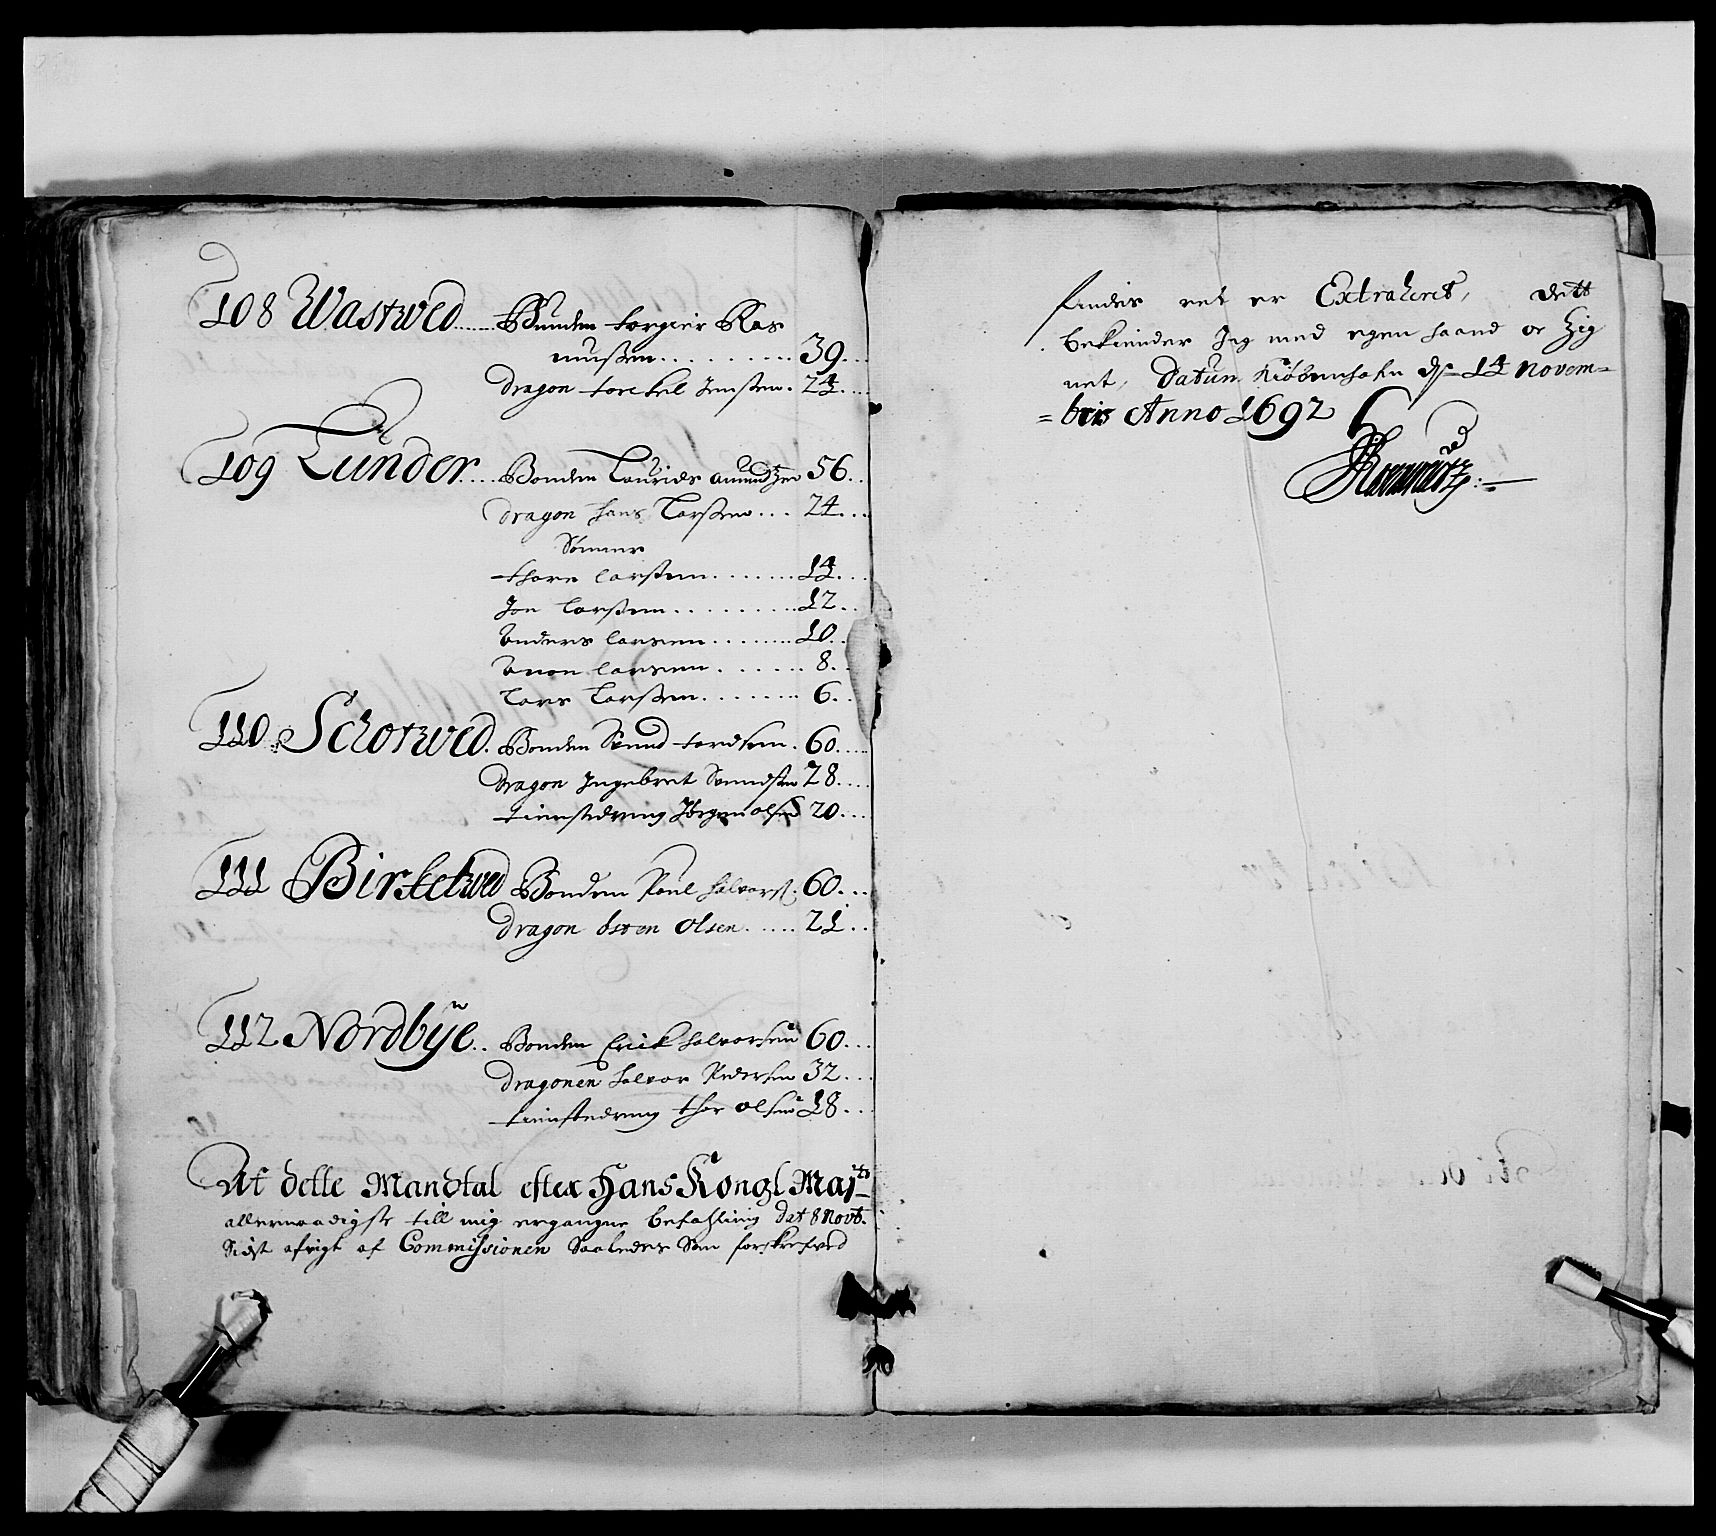 108 Wastwed...... Bunden torgier Ras
mußen.......... 39...
Dragon torckel Jenßen. 24...
109 Lunder.... Bonden Lourids amundtzen 56..
Dragon hans Larßen... 24...
Sönner
thore larßen....... 14...
Jon larßen......... 12..
Anders larsen....... 10..
Amon larsen....... 8..
Lars Larßen....... 6..
110 Schotwed. Bonden Svend tordsen. 60....
Dragon Ingebret Svendsen 28....
tienistedreng Jörgen olsen 20...
111 Birketwed Bonden Poul halvors. 60...
Dragon osten Olsen...... 21..
112 Nordbÿe.. Bonden Erick halvorsen 60...
Dragonen halvor Pedersen 32...
tienistedreng thor olsen 18...
At dette Mandtal efter Hans Kongl Maj:ts
allernaadigste till mig ergangne befahling Dat 8 Novb.
Sidst afvigt af Commissionen Saaledes Som forskrefved
findes ret er Extraheret, dett
bekiender Jeg med egen haand oc Zig
net, Datum Kiöbenhafn d 14 Novem=
=bris Anno 1692